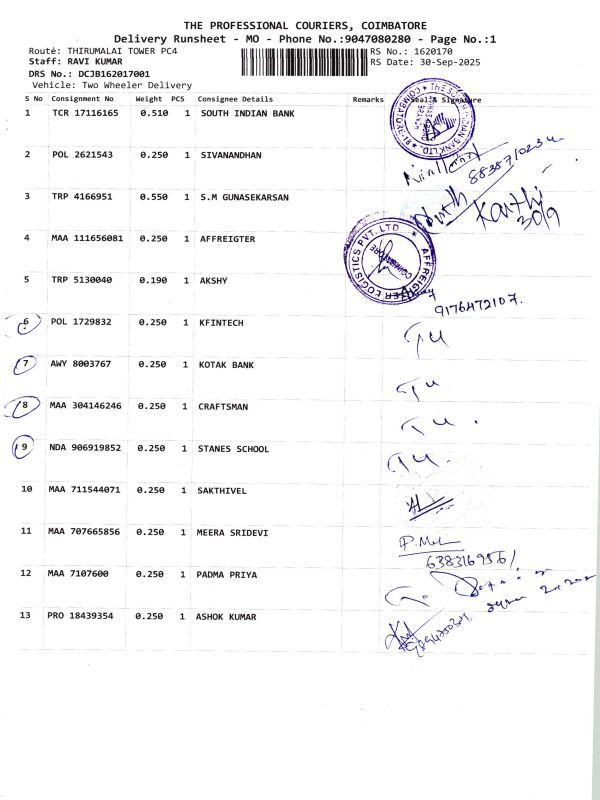 THE PROFESSIONAL COURIERS, COIMBATORE
Delivery Runsheet - MO - Phone No.:9047080280 - Page No.:1
Route: THIRUMALAI TOWER PC4 RS No.: 1620170
Staff: RAVI KUMAR RS Date: 30-Sep-2025
DRS No.: DCJB162017001
Vehicle: Two Wheeler Delivery
S No Consignment No Weight PCS Consignee Details Remarks Seal & Signature
1 TCR 17116165 0.510 1 SOUTH INDIAN BANK
2 POL 2621543 0.250 1 SIVANANDHAN
8838710234
3 TRP 4166951 0.550 1 S.M GUNASEKARSAN
Karthi
30/9
4 MAA 111656081 0.250 1 AFFREIGTER
AFFREIGHTER LOGISTICS PVT. LTD
COIMBATORE
5 TRP 5130040 0.190 1 AKSHY
9176472107.
6 POL 1729832 0.250 1 KFINTECH
7 AWY 8003767 0.250 1 KOTAK BANK
8 MAA 304146246 0.250 1 CRAFTSMAN
9 NDA 906919852 0.250 1 STANES SCHOOL
10 MAA 711544071 0.250 1 SAKTHIVEL
11 MAA 707665856 0.250 1 MEERA SRIDEVI
12 MAA 7107600 0.250 1 PADMA PRIYA
13 PRO 18439354 0.250 1 ASHOK KUMAR